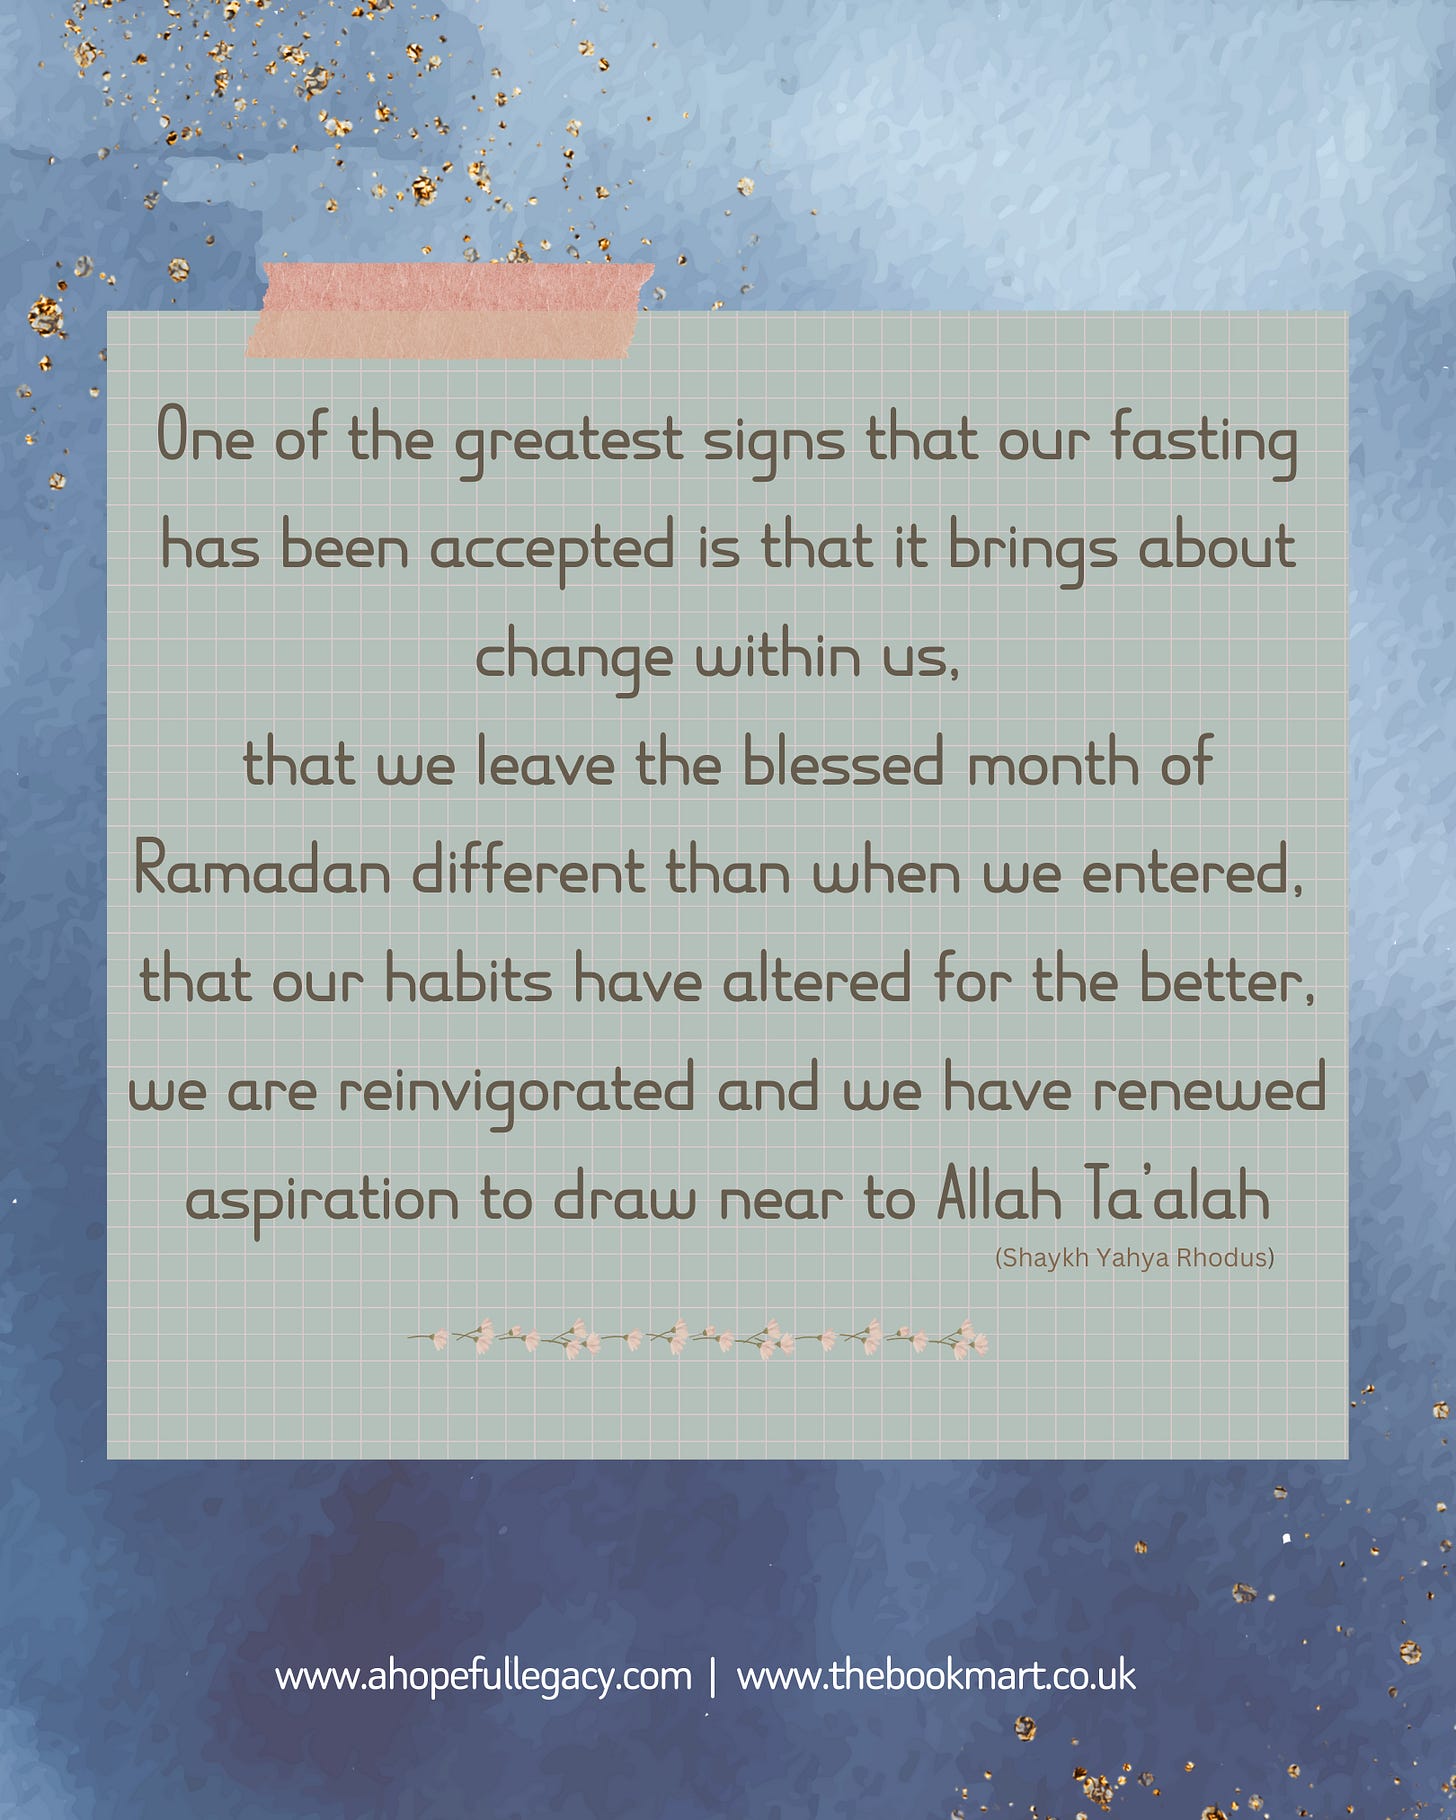 One of the greatest signs that our fasting
has been accepted is that it brings about
change within us,
that we leave the blessed month of
Ramadan different than when we entered,
that our habits have altered for the better,
we are reinvigorated and we have renewed
aspiration to draw near to Allah Ta’alah
(Shaykh Yahya Rhodus)
www.ahopefullegacy.com | www.thebookmart.co.uk